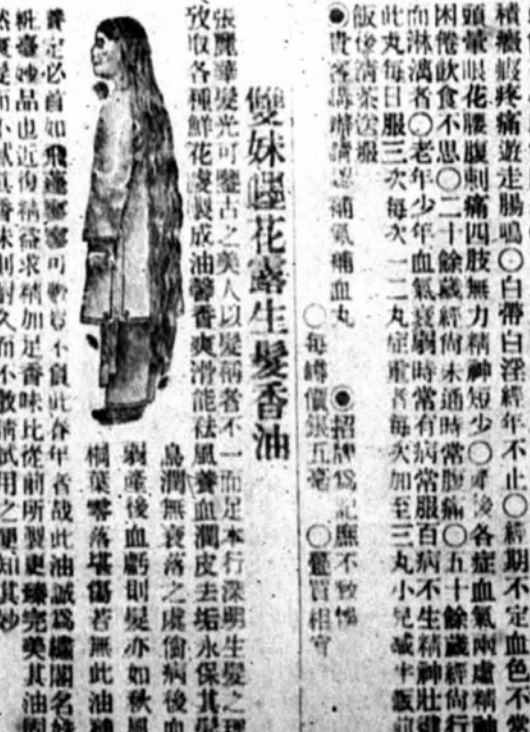 積癥瘕疼痛遊走腸鳴〇白帶白淫經年不止〇經期不定血色不常
頭暈眼花腰腹刺痛四肢無力精神短少〇產後各症血氣兩虛精神
困倦飲食不思〇二十餘歲經尙未通時常腹痛〇五十餘歲經尙行
而淋漓者〇老年少年血氣衰弱時常有病常服百病不生精神壯健
此丸每日服三次每次一二丸症重者每次加至三丸小兒減半飯前
飯後淸茶送服
◉貴客購辦請認補氣補血丸 ◉招牌爲記庶不致悞
〇每罇價銀五毫 〇躉買相宜
雙妹嘜花露生髮香油
張麗華髮光可鑒古之美人以髮稱者不一而足本行深明生髮之理
攷取各種鮮花虔製成油馨香爽滑能祛風養血潤皮去垢永保其髮
烏潤無衰落之處倘病後血
弱產後血虧則髮亦如秋風
桐葉零落堪傷若無此油補
養定必首如飛蓬 可 不負此春年者哉此油誠爲繡閣名媛
粧臺妙品也近復精益求精加足香味比從前所製更臻完美其油固
然 髮而不膩其香味則耐久而不散請試用之便知其妙